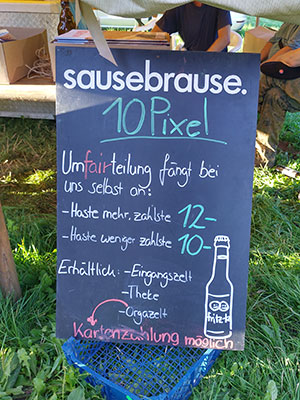 sausebrause.
10 Pixel
Umfairteilung fängt bei
uns selbst an:
-Haste mehr, zahlste 12-
-Haste weniger zahlste 10-
Erhältlich: -Eingangszelt
-Theke
-Orgazelt
Kartenzahlung möglich
fritz-k